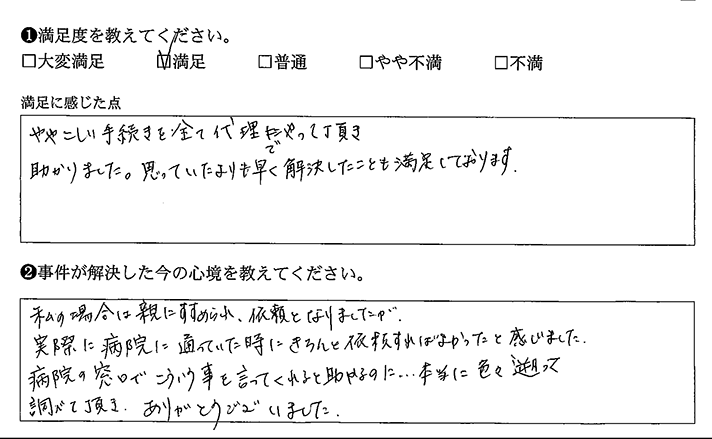 ❶満足度を教えてください。
□大変満足 ☑満足 □普通 □やや不満 □不満
満足に感じた点
ややこしい手続きを全て代理でやって頂き
助かりました。思っていたよりも早く解決したことも満足しております.
❷事件が解決した今の心境を教えてください。
私の場合は親にすすめられ、依頼となりましたが、
実際に病院に通っていた時にきちんと依頼すればよかったと感じました.
病院の窓口でこういう事を言ってくれると助かるのに…本当に色々遡って
調べて頂き、ありがとうございました.